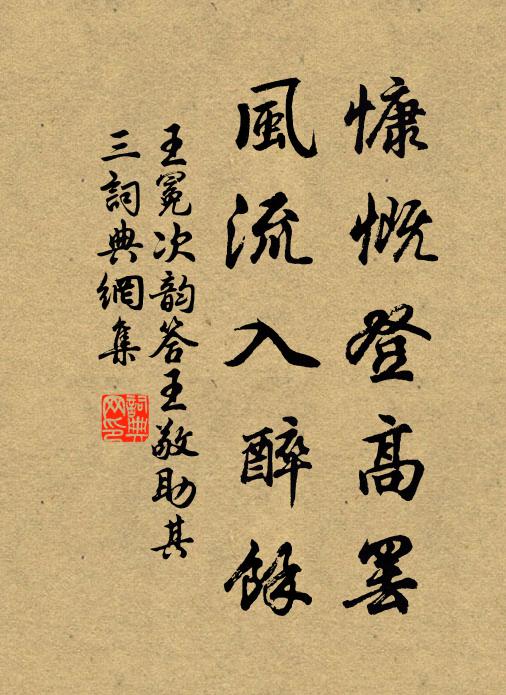 慷慨登高罢
風流入醉餘
王冕次韵答王敬助其
三詞典網集
詞典网印